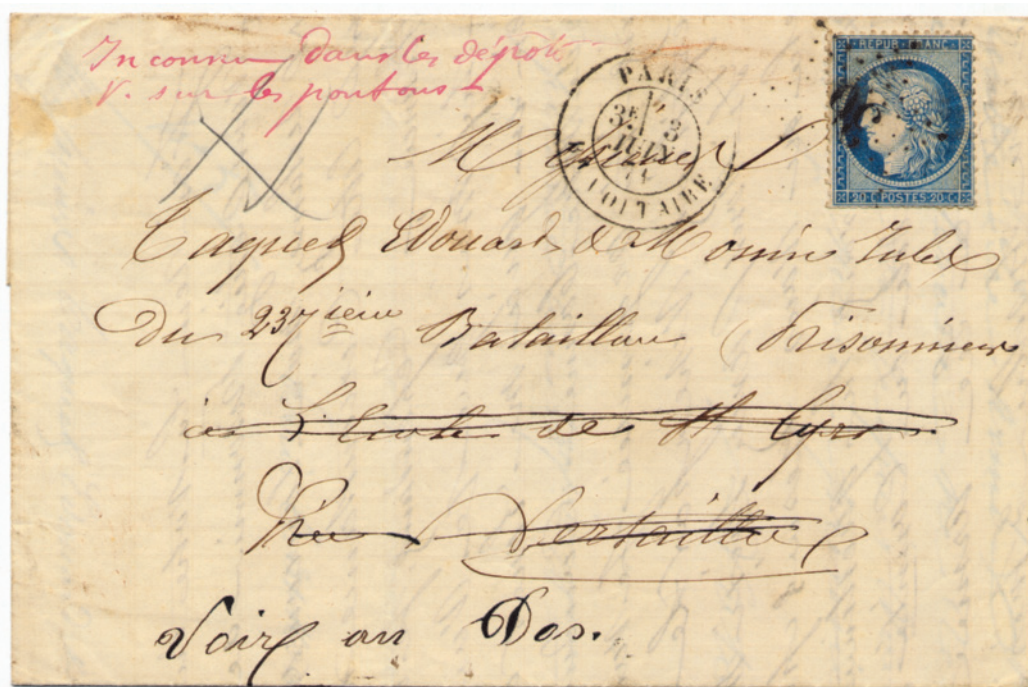 Inconnu dans les dépôts
V. sur les pontons
PARIS
3E
3
JUIN
71
VOLTAIRE
REPUB · FRANC ·
20 · C POSTES · 20 · C
Messieurs
Edouard & Jules
Du 237ieme Bataillon Prisonniers
à L'école de St Cyr
Près Versailles
Voir au Dos.